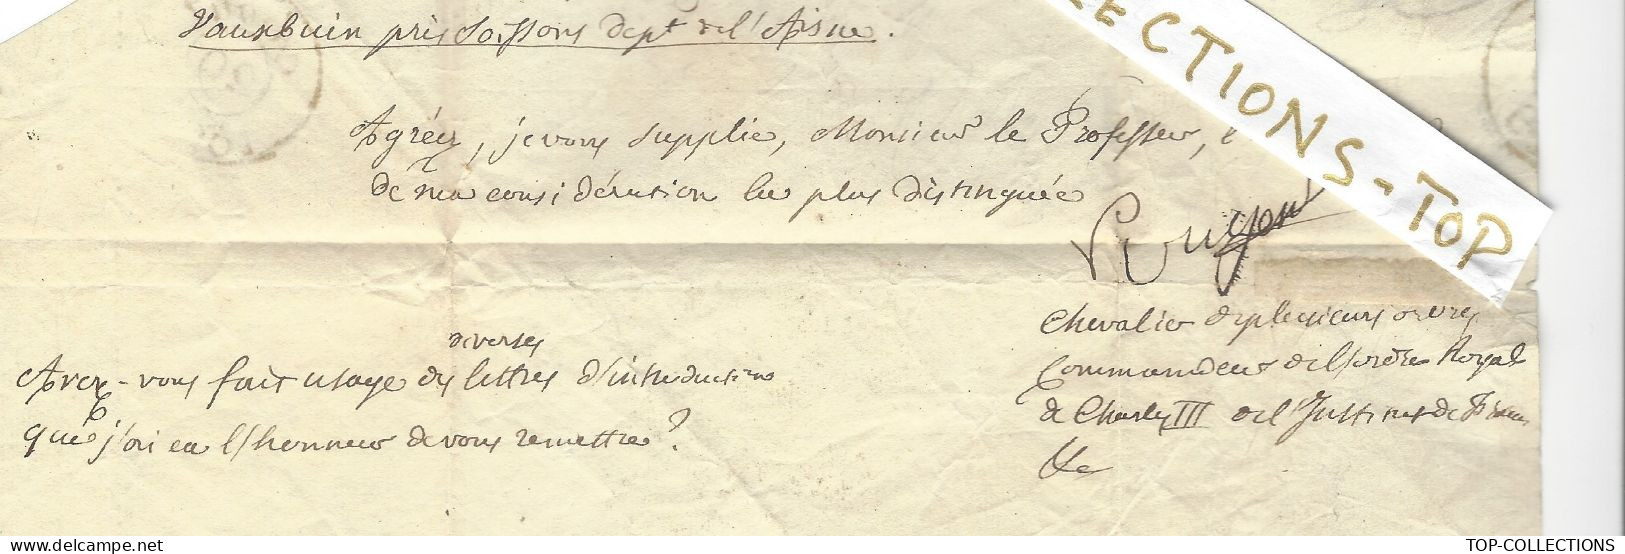 Vauxbuin près Soissons dépt de l'Aisne.
Agréez, je vous supplie, Monsieur le Professeur,
de ma considération la plus distinguée
Chevalier de plusieurs ordres
Commandeur de l'ordre Royal
de Charles III de l'Institut de
&c
diverses
Avez-vous fait usage des lettres d'introduction
que j'ai eu l'honneur de vous remettre?
ECTIONS-TOP
TOP-COLLECTIONS